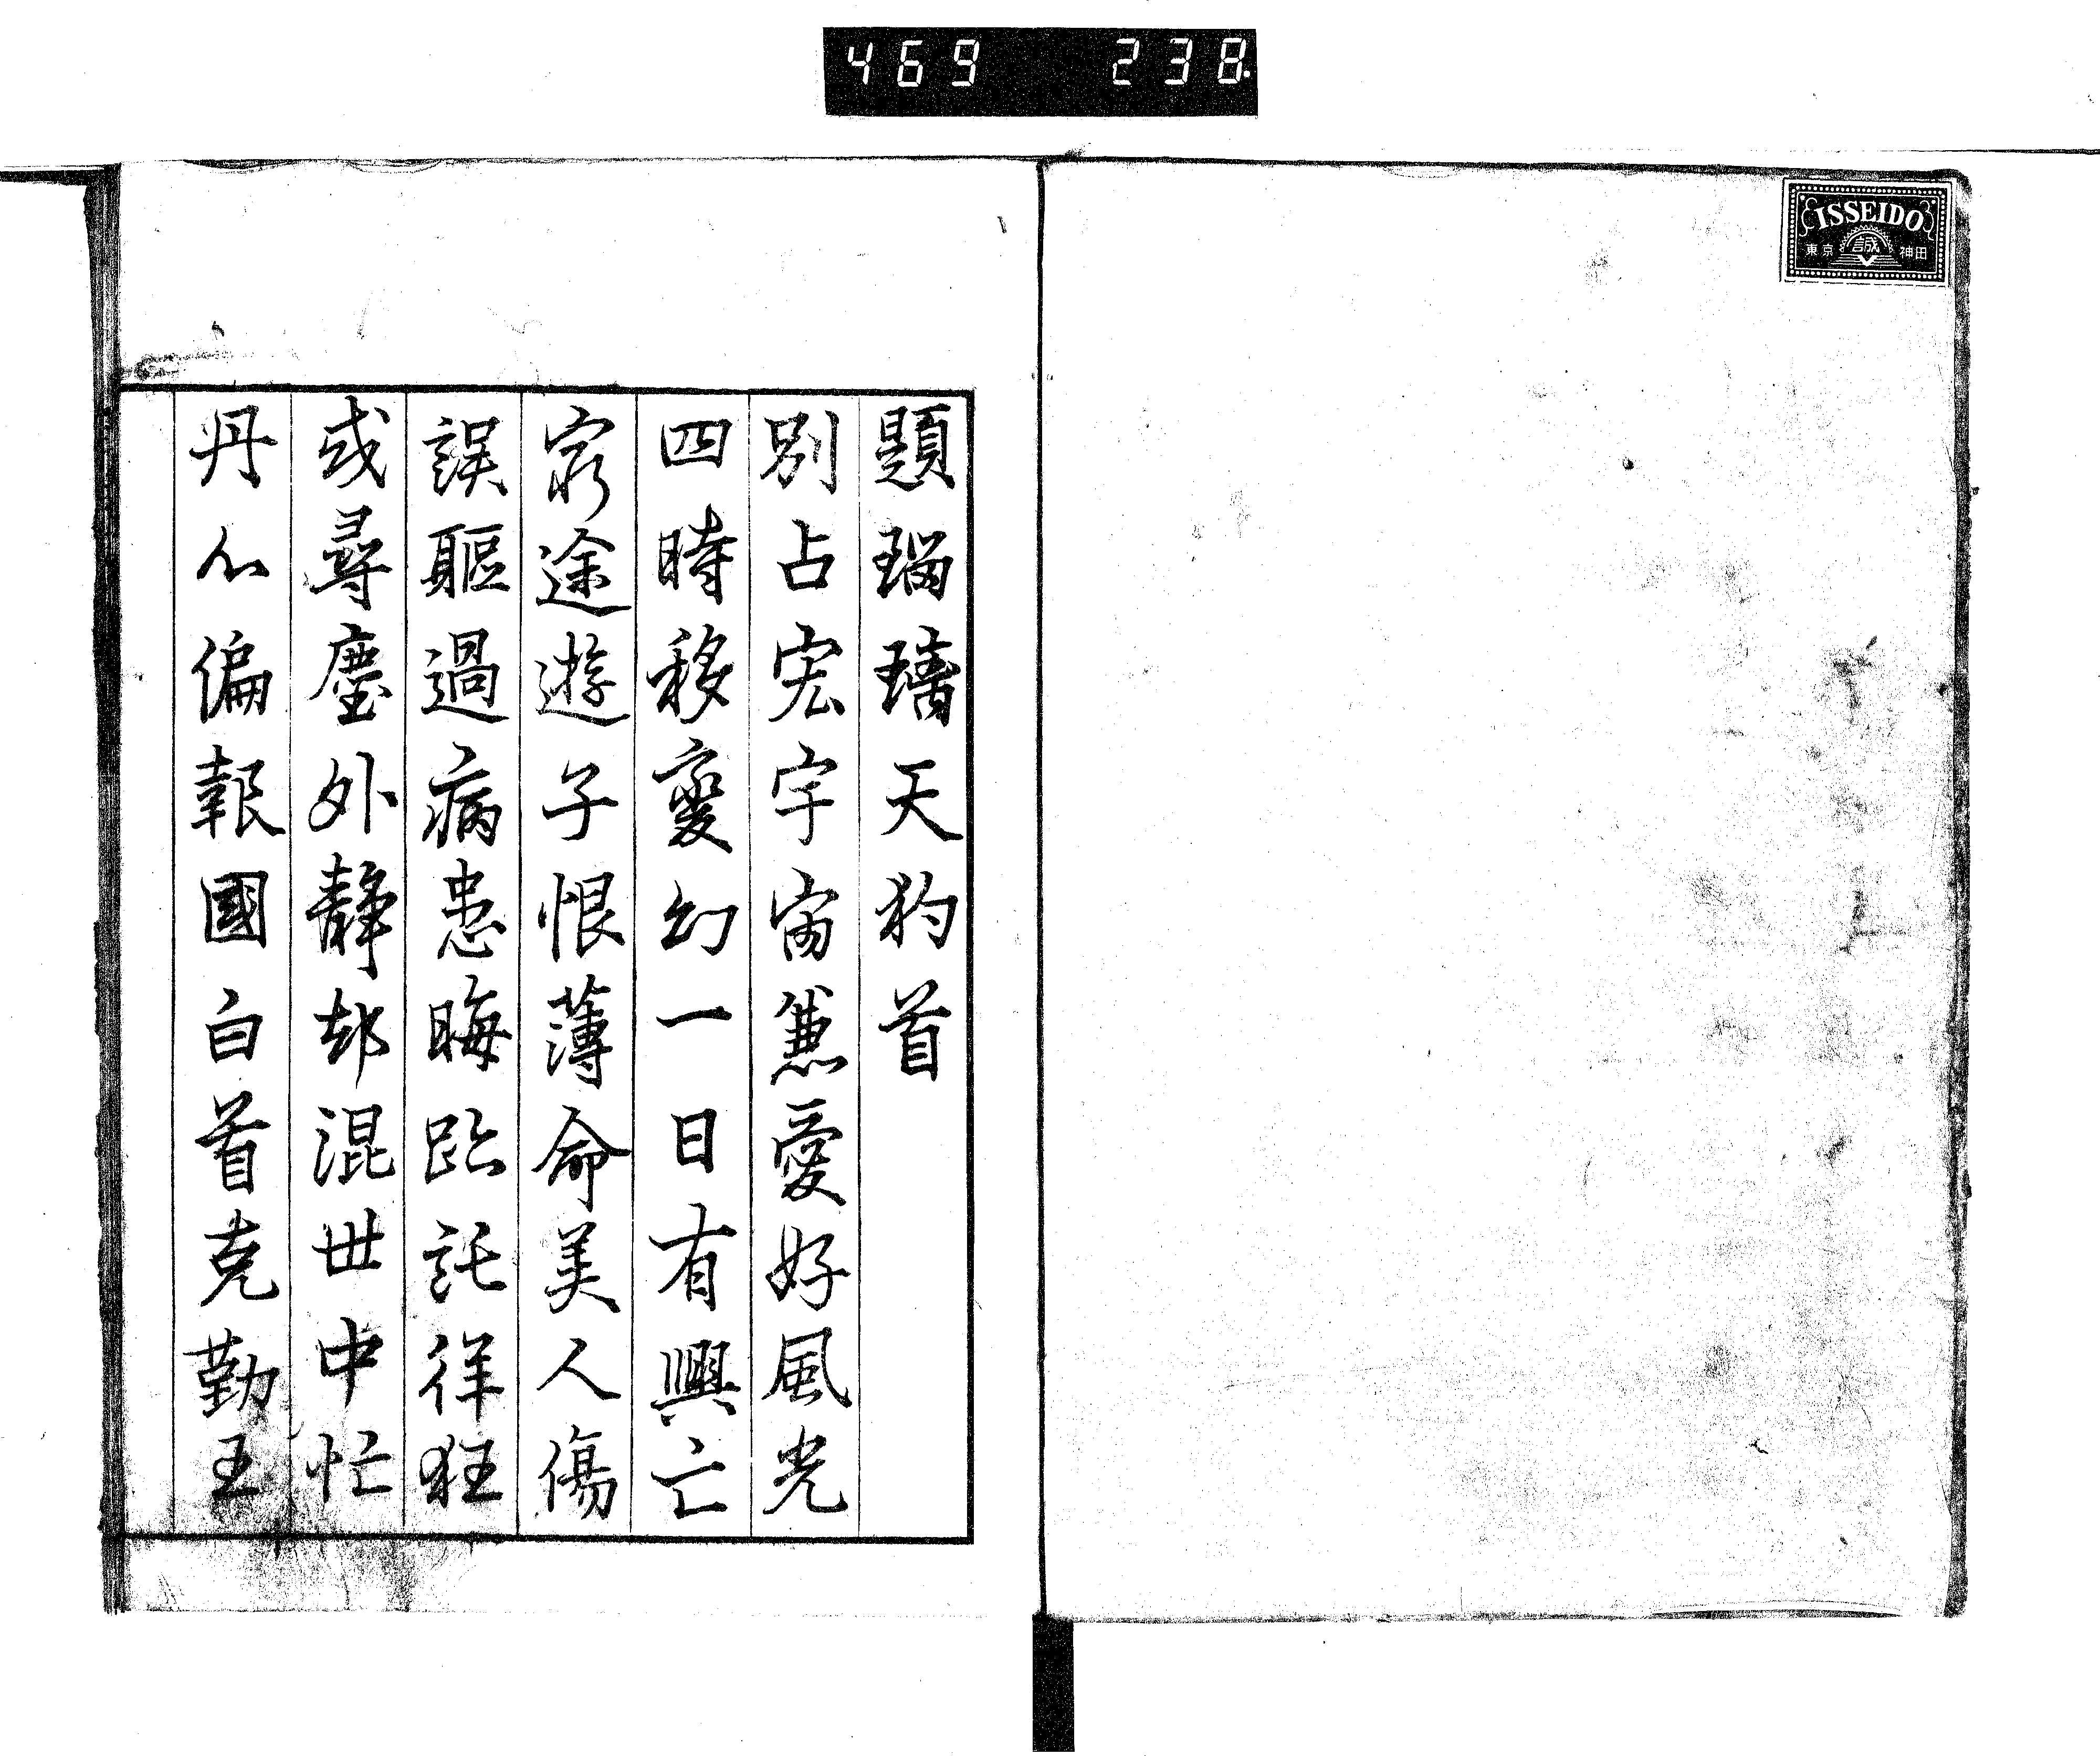 469 238
ISSEIDO
東京 誠 神田
題瑙天犳首
別占宏宇宙兼愛好風光
四時移變幻一日有興亡
窮途遊子恨薄命美人傷
誤軀過病患晦跡託徉狂
或尋塵外靜却混世中忙
丹心偏報國白首克勤王